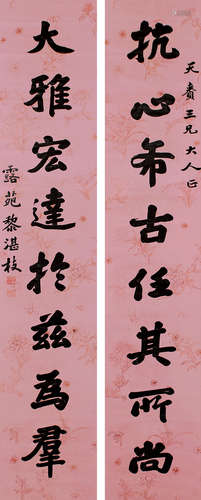 天賚三兄大人正
抗心希古任其所尚
大雅宏達於茲為羣
露苑黎湛枝